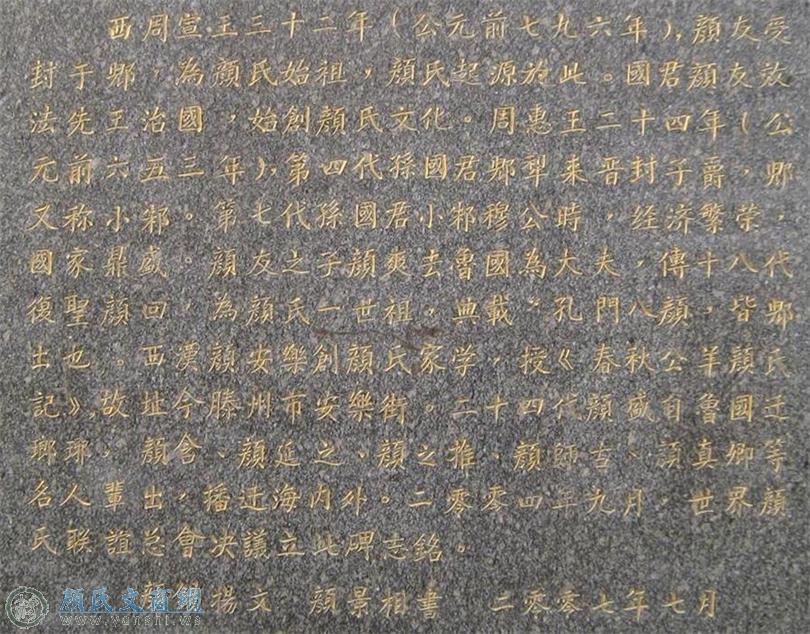 西周宣王三十二年（公元前七九六年），顔友受
封于郳，為顔氏始祖，顔氏起源於此。國君顔友效
法先王治國，始創顔氏文化。周惠王二十四年（公
元前六五三年），第四代孫國君郳犁来晋封子爵，郳
又称小邾。第七代孫國君小邾穆公時，经济繁荣，
國家鼎盛。顔友之子顔爽去魯國為大夫，傳十八代
復聖顔回，為顔氏一世祖，典載“孔門八顔，皆郳
士也。西漢顔安樂創顔氏家学，授《春秋公羊顔氏
記》，故址今滕州市安樂街。二十四代顔盛自魯國迁
瑯琊，顔含、顔延之、顔之推、顔師古、顔真卿等
名人輩出，播迁海内外。二零零四年九月，世界顔
氏联誼总會决議立此碑志銘。
揚文 顔景相書 二零零七年七月
顔氏文宣網
www.ydnshi.ws